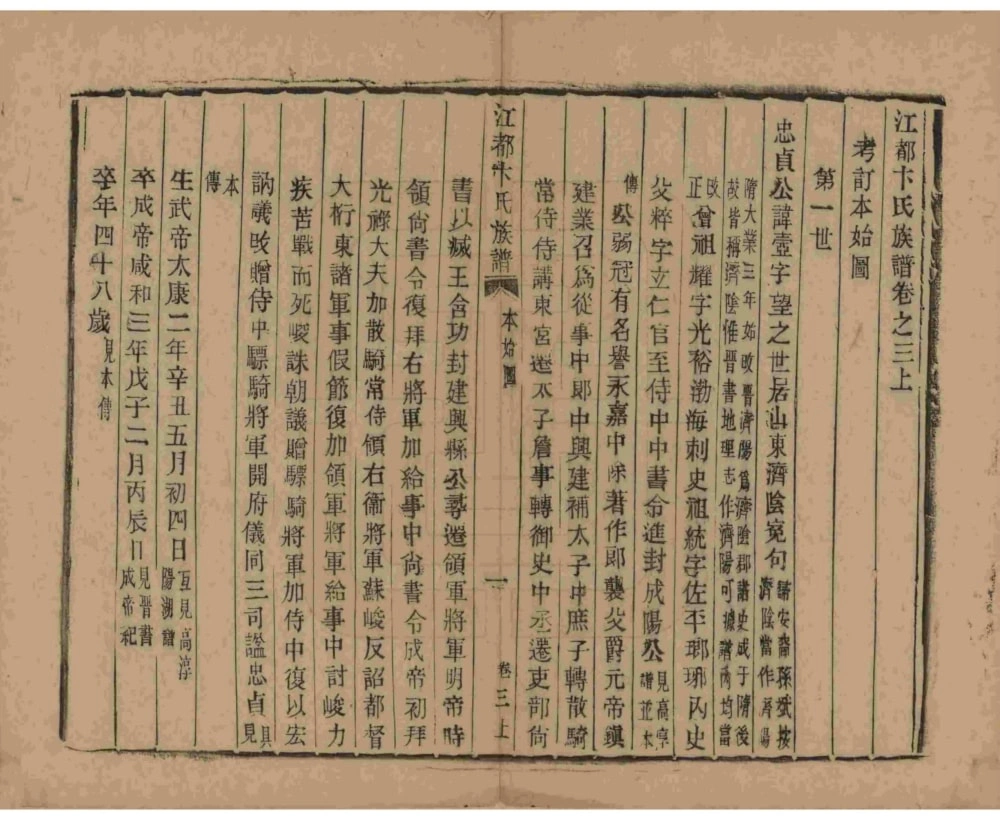 江都卞氏族譜卷之三上
考訂本始圖
第一世
忠貞公諱壼字望之世居山東濟陰冤句諸安裔孫斌按濟陰當作濟陽
隋大業三年始改晉濟陽爲濟陰郡諸史成于隋後
故皆稱濟陰惟晉書地理志作濟陽可據譜內均當
改正曾祖燿字光裕渤海刺史祖統字佐平瑯琊內史
父粹字立仁官至侍中中書令進封成陽公見高淳譜並本
傳公弱冠有名譽永嘉中除著作郎襲父爵元帝鎮
建業召爲從事中郎中興建補太子中庶子轉散騎
常侍侍講東宮遷太子詹事轉御史中丞遷吏部尙
江都卞氏族譜 本始圖 一 卷三上
書以滅王含功封建興縣公尋遷領軍將軍明帝時
領尙書令復拜右將軍加給事中尙書令成帝初拜
光祿大夫加散騎常侍領右衞將軍蘇峻反詔都督
大桁東諸軍事假節復加領軍將軍給事中討峻力
疾苦戰而死峻誅朝議贈驃騎將軍加侍中復以宏
訥議改贈侍中驃騎將軍開府儀同三司諡忠貞具見
本傳
生武帝太康二年辛丑五月初四日互見高淳陽湖譜
卒成帝咸和三年戊子二月丙辰日見晉書成帝紀
卒年四十八歲見本傳